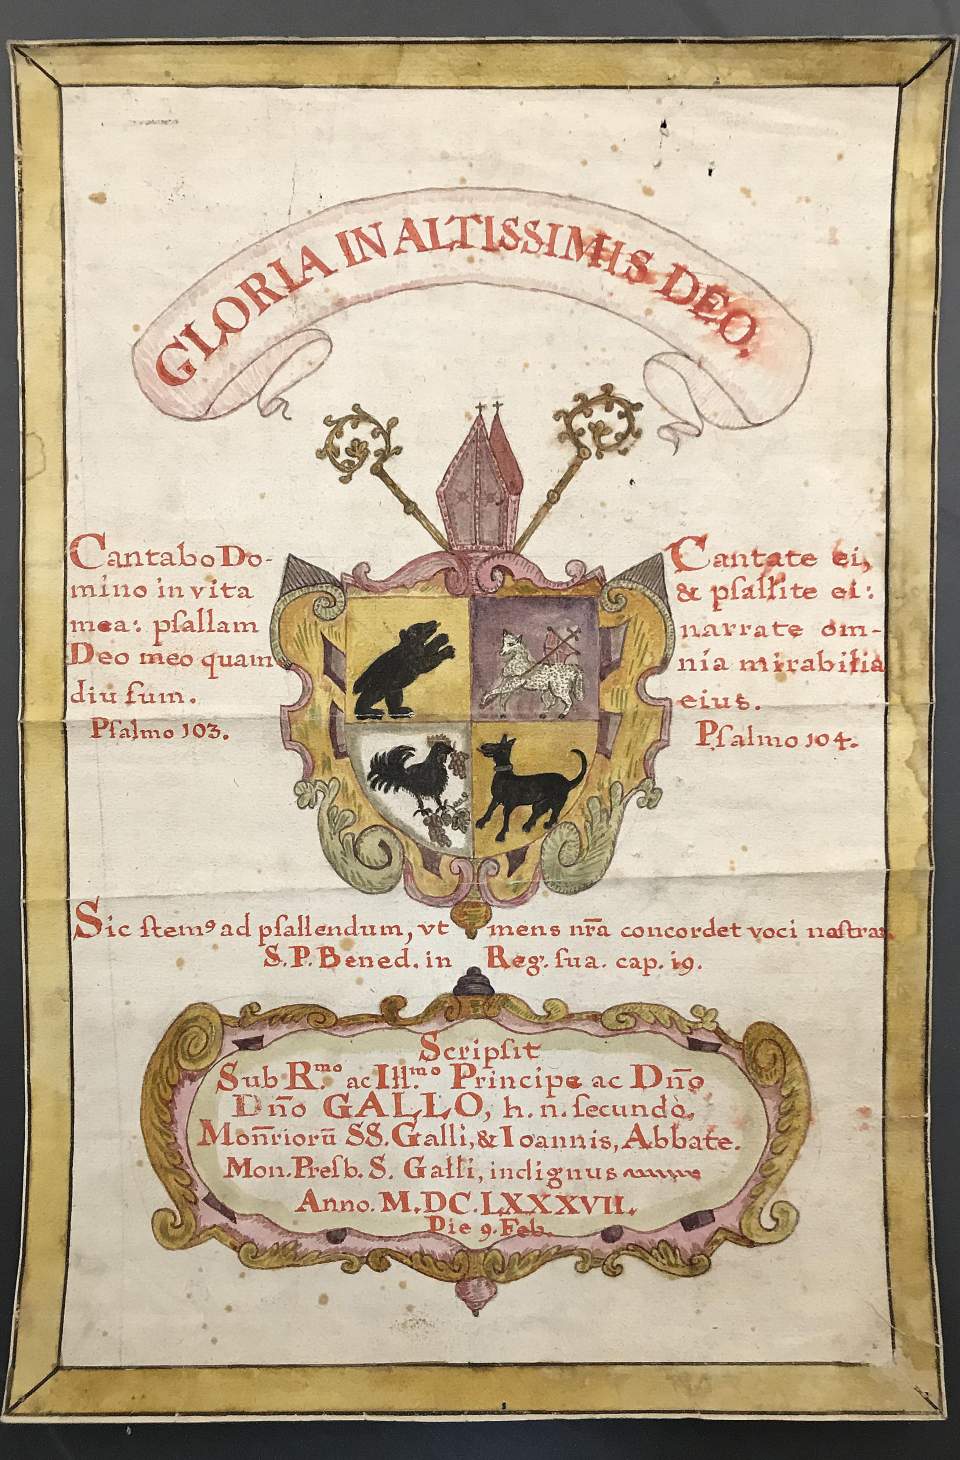 GLORIA IN ALTISSIMIS DEO.
Cantabo Do-
mino in vita
mea: pſallam
Deo meo quam
diu ſum.
Pſalmo 103.
Cantate ei,
& pſallite ei:
narrate om-
nia mirabilia
eius.
Pſalmo 104.
Sic ſtemꝰ ad pſallendum, vt mens nr̃a concordet voci noſtræ.
S. P. Bened. in Reg. ſua. cap. 19.
Scripſit
Sub R.mo ac Ill.mo Principe ac Dn̄o
Dn̄o GALLO, h. n. ſecundo,
Mon̄rioru̅ SS. Galli, & Ioannis, Abbate.
Mon. Preſb. S. Galli, indignus
Anno. M.DC.LXXXVII.
Die 9. Feb.